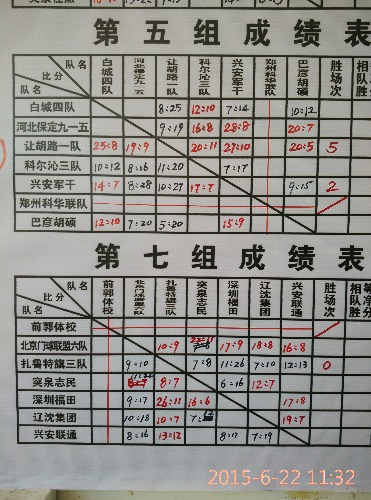 第五组成绩表
队名 比分 队名 白城四队 河北保定九一五 让胡路一队 科尔沁三队 兴安军干 郑州科华联队 巴彦胡硕 胜场次
白城四队 8:25 12:10 7:14 10:12
河北保定九一五 9:19 16:8 28:8 20:7
让胡路一队 25:8 19:9 20:11 27:10 20:5 5
科尔沁三队 10:12 8:16 11:20 7:17
兴安军干 14:7 8:28 10:27 17:7 9:15 2
郑州科华联队
巴彦胡硕 12:10 7:20 5:20 15:9
第七组成绩表
队名 比分 队名 前郭体校 扎鲁特旗三队 突泉志民 深圳福田 辽沈集团 兴安联通 胜场次
前郭体校
北京门球联盟六队 10:9 17:9 18:10 16:8
扎鲁特旗三队 9:10 7:8 11:26 7:10 12:13 0
突泉志民 8:7 6:16 12:7
深圳福田 9:17 26:11 16:6 17:8
辽沈集团 10:18 10:7 19:7
兴安联通 8:16 13:12 8:17 7:19
2015-6-22 11:32